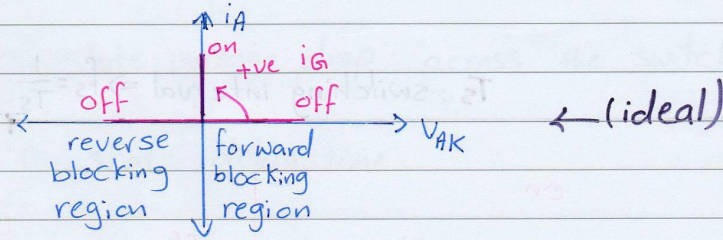 iA
on
+ve iG
off
off
VAK
←(ideal)
reverse
blocking
region
forward
blocking
region